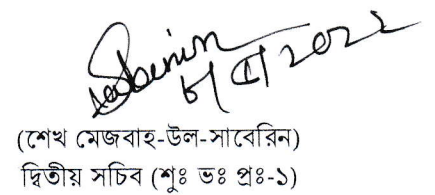 ৮/৫/২০২২
(শেখ মেজবাহ-উল-সাবেরিন)
দ্বিতীয় সচিব (শুঃ ভঃ প্রঃ-১)